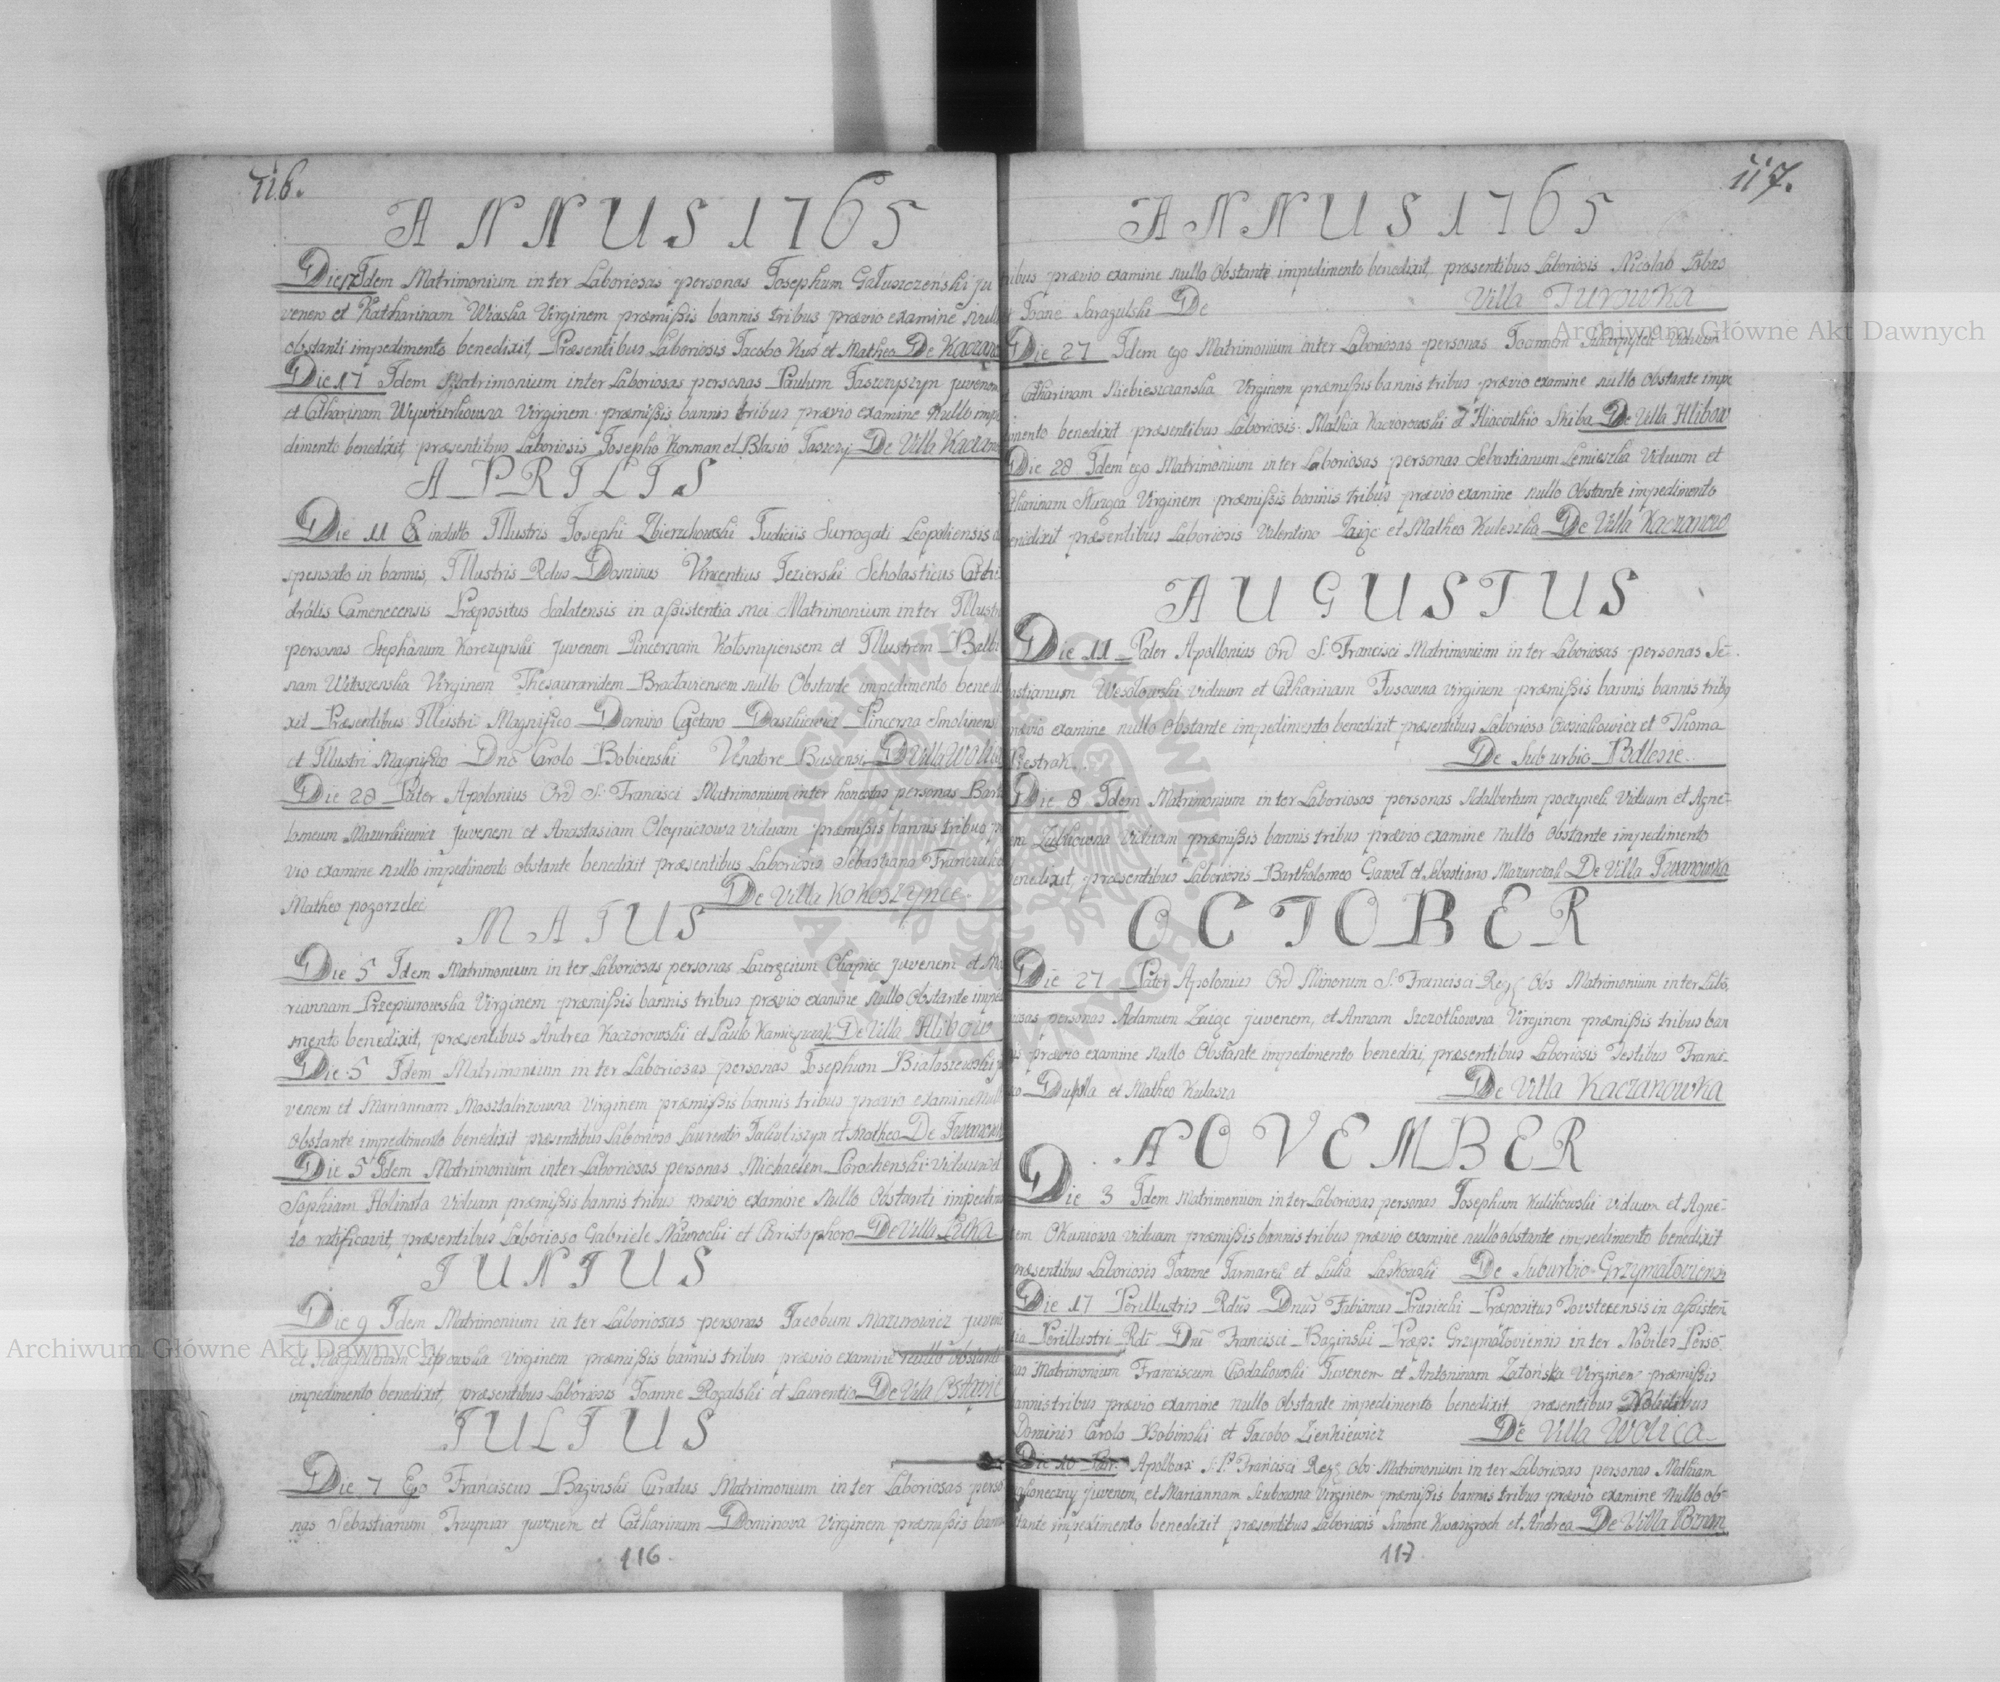 116.
ANNUS 1765
Die Idem Matrimonium inter Laboriosas personas Josephum Gałuszczeński ju
venem et Katharinam Virginem præmissis bannis tribus prævio examine null
obstanti impedimento benedixit, Præsentibus Laboriosis Jacobo Kuś et Matheo De Kaczano
Die 17 Idem Matrimonium inter Laboriosas personas Paulum Jaszczyszyn juvenem
et Catharinam Virginem præmissis bannis tribus prævio examine Nullo impe
dimento benedixit, præsentibus Laboriosis Josepho Korman et Blasio De Villa Kaczano
APRILIS
Die 11 Ex indulto Illustris Josephi Zbierzchowski Judiciis Surrogati Leopoliensis
spensato in bannis, Illustris Rdus Dominus Vincentius Jezierski Scholasticus Cathe
drális Camenecensis Præpositus Scalatensis in assistentia mei Matrimonium inter Illustr
personas Stephanum Korczynski juvenem Pincernam Kołomyiensem et Illustrem Balbi
nam Witoszenska Virginem Thesauraridem Bracłaviensem nullo Obstante impedimento bene
xit Præsentibus Illustri Magnifico Domino Cajetano Daszkiewicz Pincerna Smolinens
et Illustri Magnifico Dno Carolo Bobienski Venatore Buscensi De Villa Wolica
Die 28 Pater Apolonius Ord S. Francisci Matrimonium inter honestas personas Barto
lomeum Mazurkiewicz juvenem et Anastasiam Oleyniczowa Viduam præmissis bannis tribus
vio examine nullo impedimento obstante benedixit præsentibus Laboriosis Sebastiano
Matheo pogorzelec De Villa Kokoszynce
MAIUS
Die 5 Idem Matrimonium inter Laboriosas personas Chapiec juvenem et Ma
riannam Przepiurowska Virginem præmissis bannis tribus prævio examine Nullo Obstante impe
mento benedixit, præsentibus Andrea Kaczorowski et Paulo De Villa Hlibow
Die 5 Idem Matrimonium inter Laboriosas personas Josephum Białoszewski
venem et Mariannam Masztalirzowna Virginem præmissis bannis tribus prævio examine Null
Obstante impedimento benedixit præsentibus Laborioso Laurentio et Matheo De Iwanow
Die 5 Idem Matrimonium inter Laboriosas personas Michaelem Prochenski Viduum et
Sophiam Holinata Viduam præmissis bannis tribus prævio examine Nullo Obstanti impedimen
to ratificavit, præsentibus Laborioso Gabriele Nawrocki et Christophoro De Villa Łuka
IUNIUS
Die 9 Idem Matrimonium inter Laboriosas personas Jacobum Mazurowicz juven
et Magdalenam Lipowska Virginem præmissis bannis tribus prævio examine nullo obstanti
impedimento benedixit, præsentibus Laboriosis Joanne Rogalski et Laurentio De Villa
IULIUS
Die 7 Ego Franciscus Baginski Curatus Matrimonium inter Laboriosas perso
nas Sebastianum juvenem et Catharinam Dominova Virginem præmissis bann
116
117.
ANNUS 1765
tribus prævio examine nullo obstante impedimento benedixit, præsentibus Laboriosis Nicolao
et Joane Saragulski De Villa TUROWKA
Die 27 Idem ego Matrimonium inter Laboriosas personas Joannem Viduum
Catharinam Niebiesczanska Virginem præmissis bannis tribus prævio examine nullo obstante impe
mento benedixit præsentibus Laboriosis Mathia Kaczorowski et Hiacinthio Skiba De Villa Hlibow
Die 28 Idem ego Matrimonium inter Laboriosas personas Sebastianum Lemieszka Viduum et
tharinam Virginem præmissis bannis tribus prævio examine nullo Obstante impedimento
enedixit præsentibus Laboriosis Valentino Zaiąc et Matheo Kuleszka De Villa Kaczanowce
AUGUSTUS
Die 11 Pater Apollonius Ord S. Francisci Matrimonium inter Laboriosas personas Se-
bastianum Wesołowski Viduum et Catharinam Virginem præmissis bannis bannis tribq
prævio examine nullo obstante impedimento benedixit præsentibus Laborioso et Thoma
Piestrak De Suburbio Podlesie
Die 8 Idem Matrimonium inter Laboriosas personas Adalbertum Viduum et Agne-
tem Zubkowna Viduam præmissis bannis tribus prævio examine Nullo obstante impedimento
benedixit præsentibus Laboriosis Bartholomeo Gaweł et Sebastiano Mazurczak De Villa Iwanowka
OCTOBER
Die 27 Pater Apolonius Ord Minorum S. Francisci Reg Obs Matrimonium inter Labo,
riosas personas Adamum Zaiąc juvenem, et Annam Szczotkowna Virginem præmissis tribus ban
nis prævio examine Nullo Obstante impedimento benedixi, præsentibus Laboriosis Testibus Franci-
sco Dupla et Matheo Kulasza De Villa Kaczanowka
NOVEMBER
Die 3 Idem Matrimonium inter Laboriosas personas Josephum Kulikowski Viduum et Agne-
tem Okuniowa viduam præmissis bannis tribus prævio examine nullo obstante impedimento benedixit
præsentibus Laboriosis Joanne et Laskowski De Suburbio Grzymałoviensi
Die 17 Perillustris Rdus Dnus Fabianus Prusiecki Præpositus Toustecensis in assisten
tia Perillustri Rdi Dni Francisci Baginski Præp: Grzymałoviensis inter Nobiles Perso-
nas Matrimonium Franciscum Chodakowski Juvenem et Antoninam Zatońska Virginem præmissis
bannis tribus prævio examine nullo obstante impedimento benedixit præsentibus Nobilibus
Dominis Carolo Bobinski et Jacobo Zienkiewicz De Villa WOLICA
Die 10 Patr. Apollonius S. P. Francisci Reg Obs. Matrimonium inter Laboriosas personas Mathiam
juvenem, et Mariannam Virginem præmissis bannis tribus prævio examine Nullo ob-
stante impedimento benedixit præsentibus Laboriosis Simone et Andrea De Villa
117
Archiwum Główne Akt Dawnych
Archiwum Główne Akt Dawnych
ARCHIWUM GŁÓWNE AKT DAWNYCH